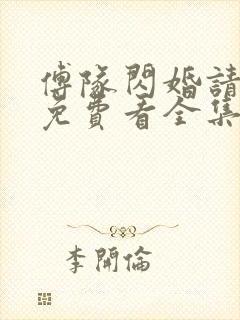 傅隊閃婚請
免費看全集
李開倫